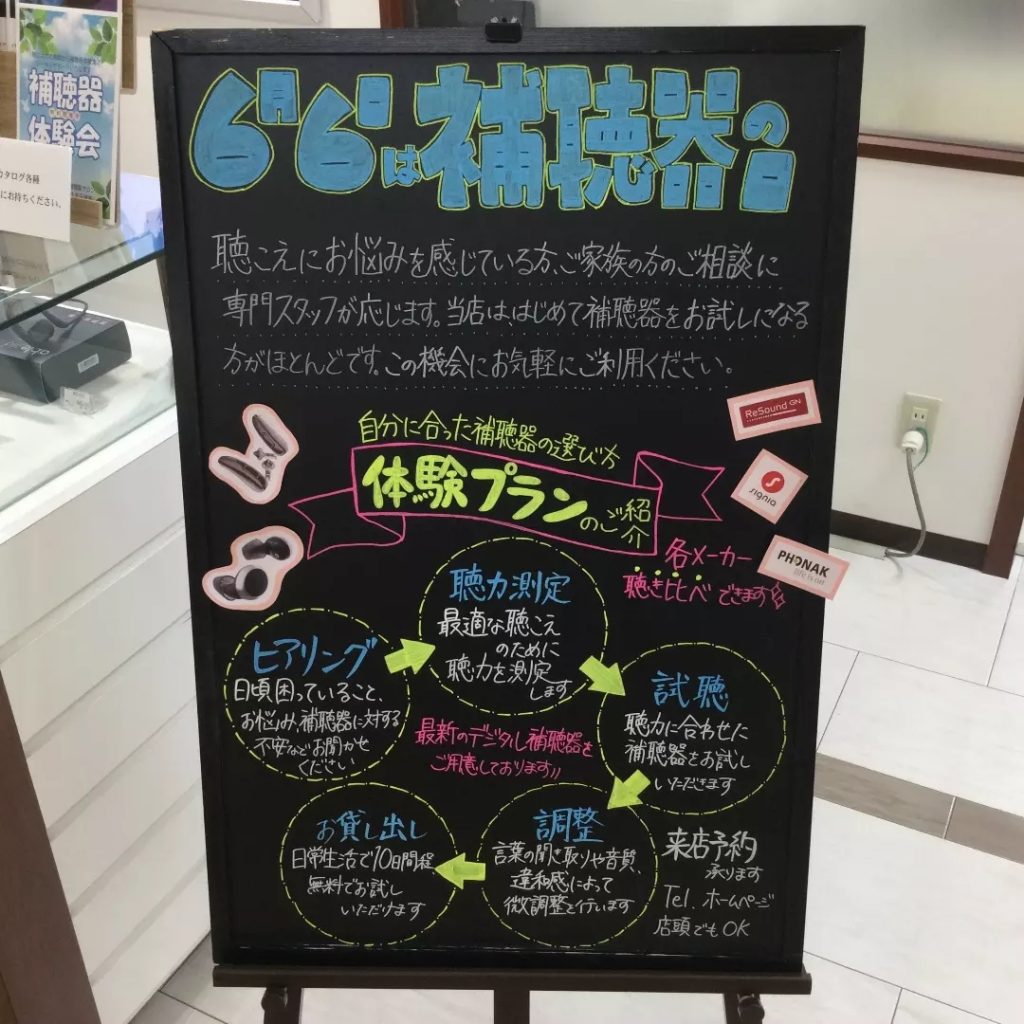 補聴器
体験会
カタログ各種
にお持ちください。
6月6日は補聴器の日
聴こえにお悩みを感じている方、ご家族の方のご相談に
専門スタッフが応じます。当店は、はじめて補聴器をお試しになる
方がほとんどです。この機会にお気軽にご利用ください。
ReSound GN
signia
PHONAK
life is on
自分に合った補聴器の選び方
体験プランのご紹介
各メーカー
聴き比べできます
ヒアリング
日頃困っていること、
お悩み、補聴器に対する
不安などお聞かせ
ください
聴力測定
最適な聴こえ
のために
聴力を測定
します
試聴
聴力に合わせた
補聴器をお試し
いただきます
最新のデジタル補聴器を
ご用意しております!!
調整
言葉の聞き取りや音質、
違和感によって
微調整を行います
お貸し出し
日常生活で10日間程
無料でお試し
いただけます
来店予約
承ります
Tel. ホームページ
店頭でもOK